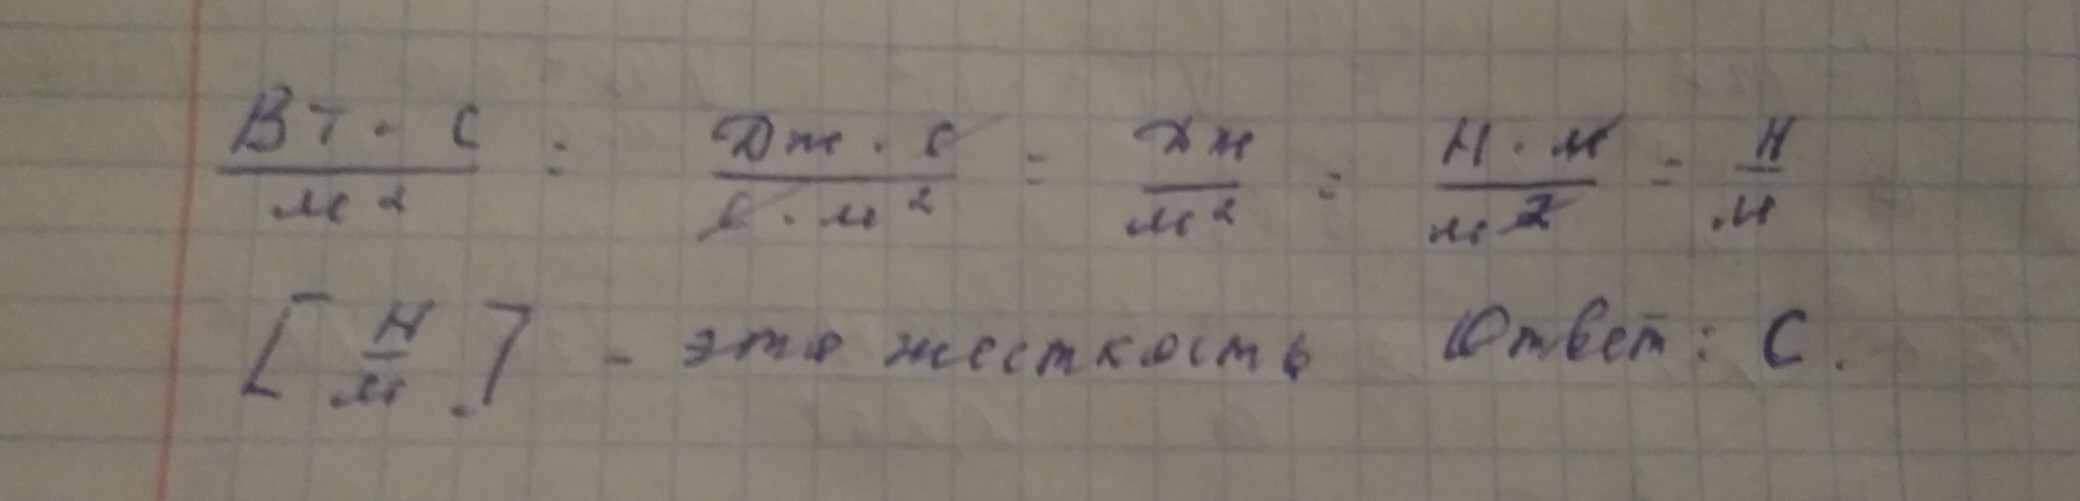 Вт · с / м² = Дж · с / с · м² = Дж / м² = Н · м / м² = Н / м
[Н / м] - это жесткость Ответ: С.